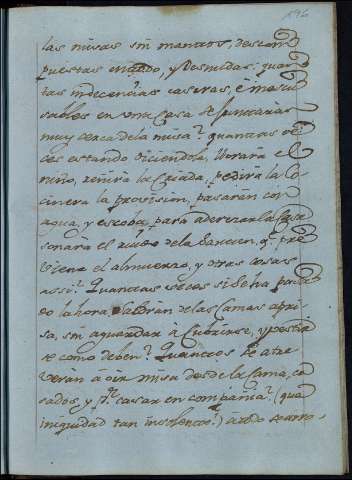 196
las misas sin mantos, descom
puestas en todo, y desnudas: quan
tas indecencias caseras, è inescu
sables en una casa se juntaràn
muy cerca de la misa? quantas ve
ces estando diciendola, llorarà el
niño, reñirà la Criada, pedirà la Co
cinera la provision, pasaràn con
agua, y escoba para aderezar la Casa
sonarà el ruido de la Sarten, qe. pre
viene el almuerzo, y otras cosas
assi? Quantas veces si se ha pasa
do la hora, saldràn de las Camas apri
sa, sin aguardar à Cubrirse, y vestir
se como deben? Quantos se atre
veràn à oir misa desde la Cama, ca
sados, y pr. casar en compañia? (que
iniquidad tan insolente!) à todo se arro-